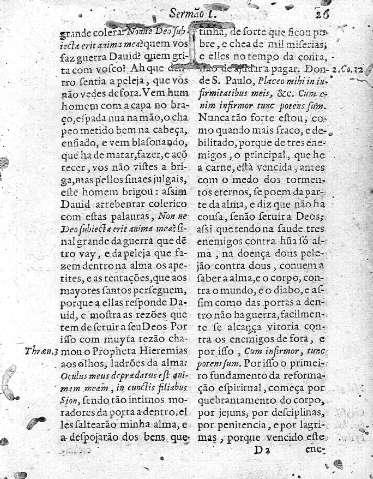 Sermão I.
26
grande colera? Nonne Deo sub-
iecta erit anima mea? quem vos
faz guerra Dauid? quem gri-
ta com vosco? Ah que den-
tro sentia a peleja, que vos
não vedes de fora. Vem hum
homem com a capa no bra-
ço, espada nua na mão, o cha
peo metido bem na cabeça,
enfiado, e vem blasonando,
que ha de matar, fazer, e acõ
tecer, vos não vistes a bri-
ga, mas pellos sinaes julgais,
este homem brigou: assim
Dauid arrebentar colerico
com estas palauras, Non ne
Deo subiecta erit anima mea? si
nal grande da guerra que dẽ
tro vay, e da peleja que fa-
zem dentro na alma os ape-
tites, e as tentações, que aos
mayores santos perseguem,
porque a ellas responde Da-
uid, e mostra as rezões que
tem de seruir a seu Deos Por
isso com muyta rezão cha-
Thren. 3
mou o Propheta Hieremias
aos olhos, ladrões da alma:
Oculus meus depradatus est ani-
mam meam, in cunctis filiabus
Sion, sendo tão intimos mo-
radores da porta a dentro, el
les saltearão minha alma, e
a despojarão dos bens que
tinha, de sorte que ficou po-
bre, e chea de mil miserias,
e elles no tempo da conta,
não de ajudar a pagar. Don-
de S. Paulo, Placeo mihi in in-
2. Co. 12
firmitatibus meis, &c. Cum e-
nim infirmor tunc potens sum.
Nunca tão forte estou, co-
mo quando mais fraco, e de-
bilitado, porque de tres ene-
migos, o principal, que he
a carne, està vencida, antes
com o medo dos tormen-
tos eternos, se poem da par-
te da alma, e diz que não ha
cousa, senão seruir a Deos:
assi que tendo na saude tres
enemigos contra hũa só al-
ma, na doença dous pele-
jão contra dous, conuem a
saber a alma, e o corpo, con-
tra o mundo, e o diabo, e as-
sim como das portas a den-
tro não ha guerra, facilmen-
te se alcança vitoria con-
tra os enemigos de fora, e
por isso, Cum infirmor, tunc
potens sum. Por isso o primei-
ro fundamento da reforma-
ção espiritual, começa por
quebrantamento do corpo,
por jejuns, por desciplinas,
por penitencia, e por lagri-
mas, porque vencido este
D 2
ene-